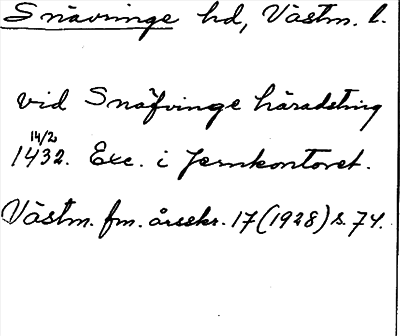 Snävringe hd, Västm. l.
vid Snäfvinge häradsting
14/2
1432. Exc. i Jernkontoret.
Västm. fm. årsskr. 17 (1928) s. 74.